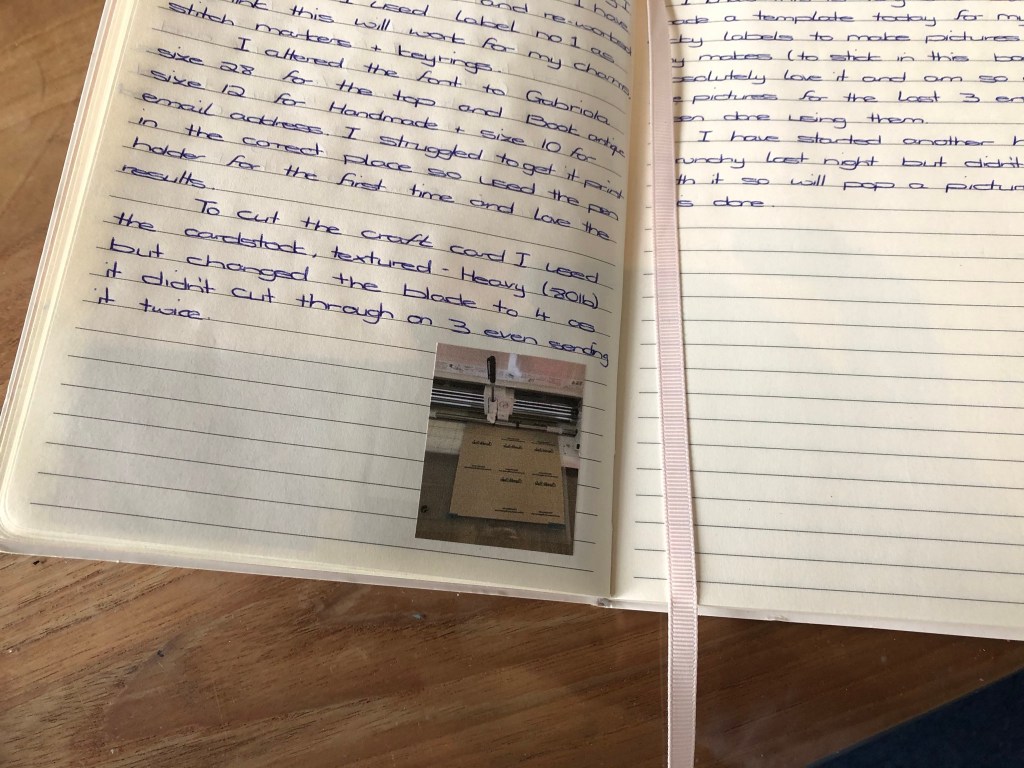 I used label no 1 as
and re-worked
I have
think this will work for my charms,
stitch markers + keyrings.
I altered the font to Gabriola
size 28 for the top and Book antique
size 12 for Handmade + size 10 for
email address. I struggled to get it print
in the correct place so used the pen
holder for the first time and love the
results.
To cut the craft card I used
the cardstock, textured - Heavy (80lb)
but changed the blade to 4 as
it didn't cut through on 3 even sending
it twice.
a template today for my
labels to make pictures
makes (to stick in this book
love it and am so
pictures for the last 3
done using them.
I have started another
last night but didn't
it so will pop a picture
done.